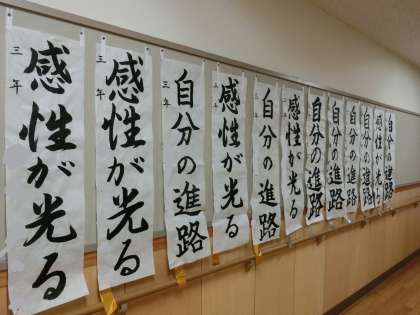 感性が光る
三年
感性が光る
三年
自分の進路
三年
感性が光る
三年
自分の進路
三年
感性が光る
自分の進路
自分の進路
自分の進路
自分の進路
感性が光る
自分の進路